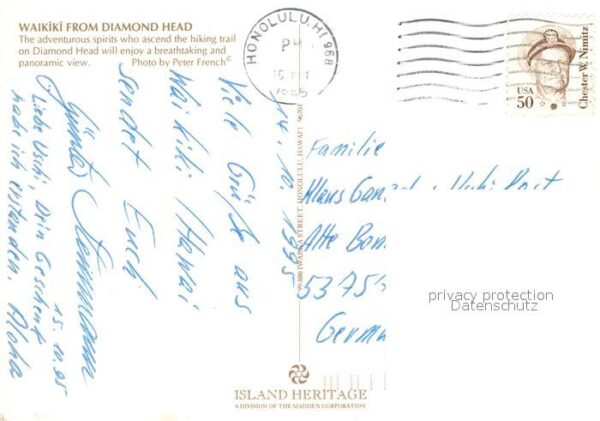 WAIKĪKĪ FROM DIAMOND HEAD
The adventurous spirits who ascend the hiking trail
on Diamond Head will enjoy a breathtaking and
panoramic view. Photo by Peter French©
HONOLULU, HI 968
PM
1995
USA
50
Chester W. Nimitz
14. 10. 1995
Viele Grüße aus
Waikiki Hawai
sendet Euch
Günter
15. 10. 95
Liebe Uschi, Dein Geschenk
habe ich erstanden. Aloha
99-880 IWAENA STREET, HONOLULU, HAWAI'I 96701
Familie
Klaus
Alte
5375
Germ
privacy protection
Datenschutz
ISLAND HERITAGE
A DIVISION OF THE MADDEN CORPORATION